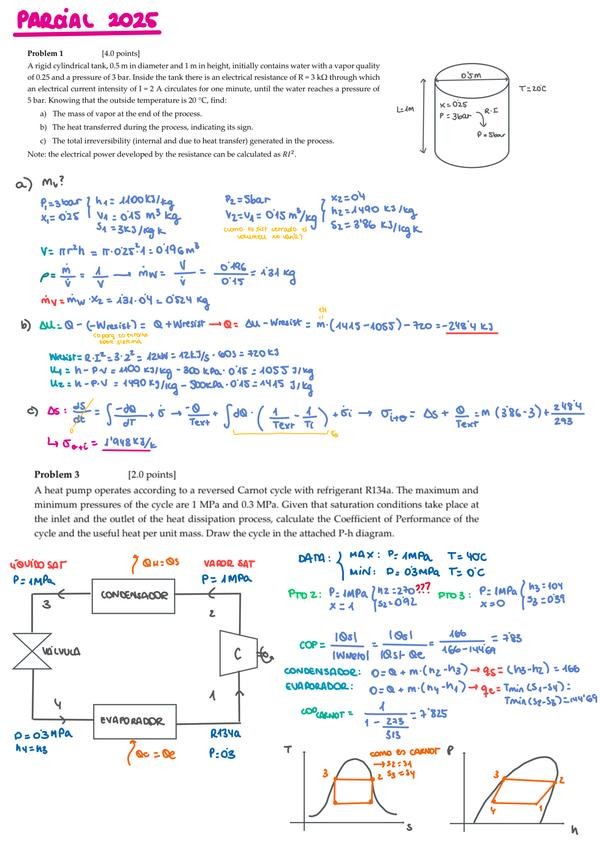 PARCIAL 2025
Problem 1 [4.0 points]
A rigid cylindrical tank, 0.5 m in diameter and 1 m in height, initially contains water with a vapor quality
of 0.25 and a pressure of 3 bar. Inside the tank there is an electrical resistance of R = 3 kΩ through which
an electrical current intensity of I = 2 A circulates for one minute, until the water reaches a pressure of
5 bar. Knowing that the outside temperature is 20 °C, find:
a) The mass of vapor at the end of the process.
b) The heat transferred during the process, indicating its sign.
c) The total irreversibility (internal and due to heat transfer) generated in the process.
Note: the electrical power developed by the resistance can be calculated as RI².
0'5m
T=20ºC
L=1m
x=0'25
P=3bar
R·I
P=5bar
a) mv?
P1=3bar h1=1100KJ/kg
x1=0'25 V1=0'15 m³ kg
S1=3KJ/kg K
P2=5bar x2=0'4
V2=V1=0'15 m³/kg h2=1490 KJ/kg
S2=3'86 KJ/kg K
V= πr²h = π·0'25²·1=0'196m³
ρ= m/V = 1/V → mw= V/V = 0'196/0'15 = 1'31 kg
mv=mw·x2=1'31·0'4=0'524 kg
b) ΔU=Q-(-Wresist)= Q+Wresist→Q= ΔU-Wresist= m·(1415-1055)-720=-248'4 KJ
Wresist=R·I²=3·2²=12kW=12KJ/s·60s=720KJ
U1=h-P·V=1100 KJ/kg-300KPa·0'15=1055 J/kg
U2=h-P·V=1490KJ/kg-500KPa·0'15=1415 J/kg
c) ΔS: dS/dt = ∫-dQ/dT + σ → -Q/Text + ∫dQ·(1/Text - 1/Ti) + σi → σi+e = ΔS + Q/Text = m(3'86-3)+248'4/293
↳ σe+i = 1'948KJ/K
Problem 3 [2.0 points]
A heat pump operates according to a reversed Carnot cycle with refrigerant R134a. The maximum and
minimum pressures of the cycle are 1 MPa and 0.3 MPa. Given that saturation conditions take place at
the inlet and the outlet of the heat dissipation process, calculate the Coefficient of Performance of the
cycle and the useful heat per unit mass. Draw the cycle in the attached P-h diagram.
LÍQUIDO SAT
P=1MPa
QH=Qs
VAPOR SAT
P=1MPa
3
CONDENSADOR
2
VÁLVULA
C
4
1
P=0'3MPa
h4=h3
EVAPORADOR
R134a
P=0'3
Qc=Qe
DATA: MAX: P=1MPa T=40ºC
MIN: P=0'3MPa T=0ºC
PTO 2: P=1MPa h2=270???
x=1 S2=0'92
PTO 3: P=1MPa h3=104
x=0 S3=0'39
COP= |Qs|/|Wneto| = |Qs|/|Qs|-Qe = 166/166-144'69 = 7'83
CONDENSADOR: 0=Q+m·(h2-h3)→qs=(h3-h2)=166
EVAPORADOR: 0=Q+m·(h4-h1)→qe=Tmin(S1-S4)=
Tmin(S2-S3)=144'69
COP CARNOT = 1/1-273/313 = 7'825
T
COMO ES CARNOT
→S2=S1
S3=S4
3
2
s
P
3
2
4
1
h